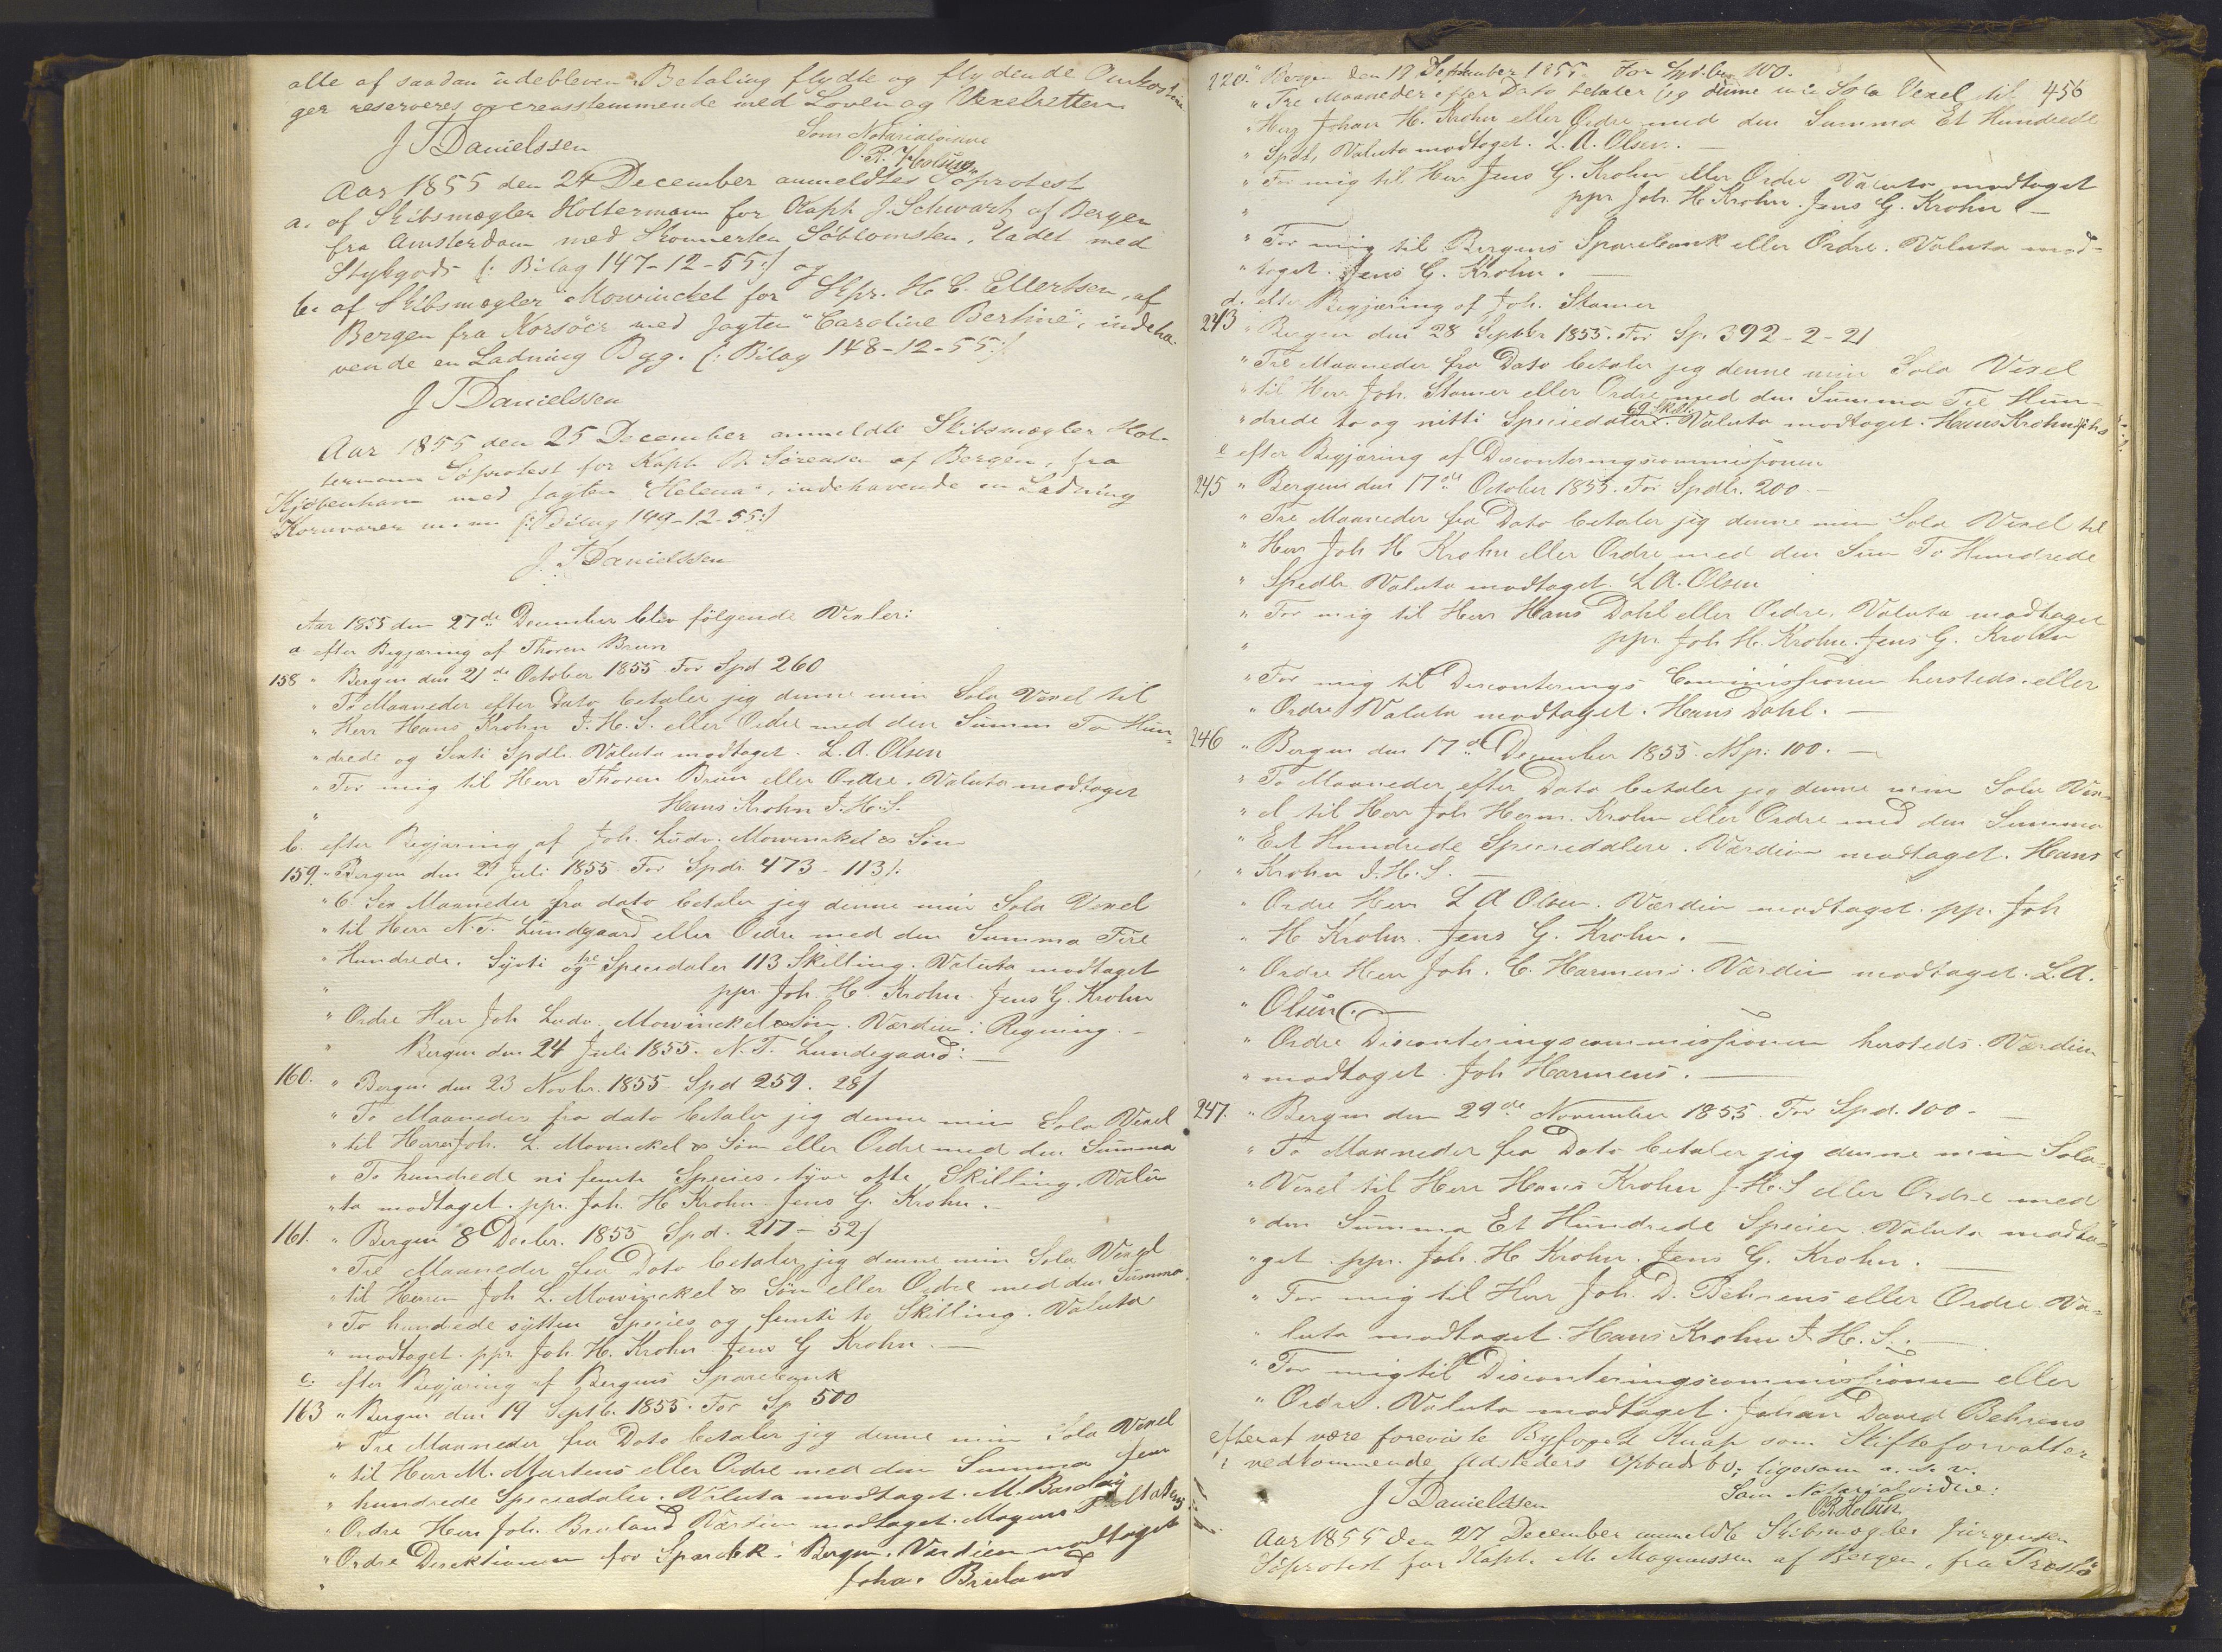 alle af saadan udebleven Betaling flydte og flydende Omkostnin
ger reserveres overeensstemmende med Loven og Vexelretten
J T Danielssen
Som Notarialvidne
O. R. Holsen
Aar 1855 den 24 December anmeldtes Söprotest
a. af Skibsmægler Holtermann for Kapt. J. Schwartz af Bergen
fra Amsterdam med Skonnerten Söblomsten, ladet med
Stykgods (: Bilag 147-12-55:) og
b. af Skibsmægler Mowinckel for Skpr. H. C. Ellertsen, af
Bergen fra Korsöer med Jagten "Caroline Bertine", indeha-
vende en Ladning Byg. (: Bilag 148-12-55:)
J T Danielssen
Aar 1855 den 25 December anmeldte Skibsmægler Hol-
termann Söprotest for Kapt. Sörensen af Bergen, fra
Kjöbenhavn med Jagten "Helena", indehavende en Ladning
Kornvarer m.m (: Bilag 149-12-55:)
J. T Danielssen
Aar 1855 den 27de December blev fölgende Vexler:
a efter Begjæring af Thoren Brun
158 " Bergen den 21de October 1855 For Spd 260
" To Maaneder efter Dato betaler jeg denne min Sola Vexel til
" Herr Hans Krohn J. H. S. eller Ordre med den Summa To Hun-
" drede og Sexti Spdlr. Valuta modtaget. L. A. Olsen
" For mig til Herr Thoren Brun eller Ordre. Valuta modtaget
" Hans Krohn J. H. S.
b. efter Begjæring af Joh. Ludv. Mowinckel & Sön
159. " Bergen den 21 Juli 1855 For Spdr 473 - 113 ſ.
" 6. Sex Maaneder fra dato betaler jeg denne min Sola Vexel
" til Herr N. T. Lundegaard eller Ordre med den Summa Fire
" Hundrede, Sÿtti og tre Speciedaler 113 Skilling. Valuta modtaget
" ppr. Joh. H. Krohn. Jens G. Krohn
" Ordre Herr Joh Ludv. Mowinckel & Sön. Værdien i Regning. -
" Bergen den 24 Juli 1855. N. T. Lundegaard: -
160. " Bergen den 23 Novbr. 1855. Spd 259. 28 ſ
" To Maaneder fra dato betaler jeg denne min Sola Vexel
" til Herrer Joh. L. Mowinckel & Sön eller Ordre med den Summa
" To hundrede ni femti Species, tyve otte Skilling. Valu-
" ta modtaget. ppr. Joh. H Krohn Jens G. Krohn. -
161. " Bergen 8 Decbr. 1855 Spd. 217 - 52 ſ
" Tre Maaneder fra Dato betaler jeg denne min Sola Vexel
" til Herren Joh L. Mowinckel & Sön eller Ordre med den Summa
" To hundrede sytten Species og femti to Skilling. Valuta
" modtaget. ppr. Joh. H. Krohn Jens G Krohn. -
c. efter Begjæring af Bergens Sparebank
163 " Bergen den 19 Septb. 1855. For Sp 500
" Tre Maaneder fra Dato betaler jeg denne min Sola Vexel
" til Herr M. Martens eller Ordre med den Summa fem
" hundrede Speciedaler. Valuta modtaget. M.
" Ordre Herr Joh. Bruland Værdien modtaget. Magnus Martens
" Ordre Direktionen for Sparebk. i Bergen. Værdien modtaget
" Johan Bruland
456
220. " Bergen den 19 September 1855. For Spd. 100.
" Tre Maaneder efter Dato betaler jeg denne min Sola Vexel til
" Herr Johan H. Krohn eller Ordre med den Summa Et Hundrede
" Spdl, Valuta modtaget. L. A. Olsen. -
" For mig til Herr Jens G. Krohn eller Ordre Valuta modtaget
" ppr Joh. H. Krohn. Jens G. Krohn. -
" For mig til Bergens Sparebank eller Ordre. Valuta mod-
" taget. Jens G. Krohn. -
d. efter Begjæring af Joh. Stamer
243 " Bergen den 28 Septbr 1855. For Sp. 392 - 2 - 21
" Tre Maaneder fra Dato betaler jeg denne min Sola Vexel
" til Herr Joh. Stamer eller Ordre med den Summa Tre Hun-
" drede to og nitti Speciedaler 69 Skil. Valuta modtaget. Hans Krohn JHS
e efter Begjæring af Disconteringscommissionen
245 " Bergen den 17de October 1855. For Spdlr. 200 -
" Tre Maaneder fra Dato betaler jeg denne min Sola Vexel til
" Herr Joh H Krohn eller Ordre med den Sum To Hundrede
" Spedlr Valuta modtaget. L A. Olsen
" For mig til Herr Hans Dahl eller Ordre, Valuta modtaget
" ppr. Joh H. Krohn. Jens G. Krohn
" For mig til Disconterings Commissionen hersteds eller
" Ordre Valuta modtaget. Hans Dahl. -
246 " Bergen den 17de December 1855. Sp: 100. -
" To Maaneder efter Dato betaler jeg denne min Sola Vex-
" el til Herr Joh Herm. Krohn eller Ordre med den Summa
" Eet Hundrede Speciedalere. Værdien modtaget. Hans
" Krohn J. H. S. -
" Ordre Herr L A Olsen. Værdien modtaget. pp. Joh
" H Krohn. Jens G. Krohn. -
" Ordre Herr Joh. C. Harmens. Værdien modtaget. L. A.
" Olsen. -
" Ordre Disconteringscommissionen hersteds. Værdien
" modtaget. Joh Harmens. -
247. " Bergen den 29de November 1855. For Spd. 100 -
" To Maaneder fra Dato betaler jeg denne min Sola-
" Vexel til Herr Hans Krohn J. H. S eller Ordre med
" den Summa Et Hundrede Species. Valuta modta-
" get. ppr. Joh. H Krohn. Jens G. Krohn. -
" For mig til Herr Joh. D. Behrens eller Ordre. Va-
" luta modtaget. Hans Krohn J. H. S. -
" For mig til Disconteringscommissionen eller
" Ordre. Valuta modtaget. Johan David Behrens
efterat være foreviste Byfoged Knap som Skifteforvalter
i vedkommende Udsteders Opbudsbo, ligesom u. s. v.
J T Danielssen
Som Notarialvidne:
OR Holsen
Aar 1855 den 27 December anmeldte Skibsmægler Jürgensen
Söprotest for Kapt. M. Magnussen af Bergen, fra Præstö